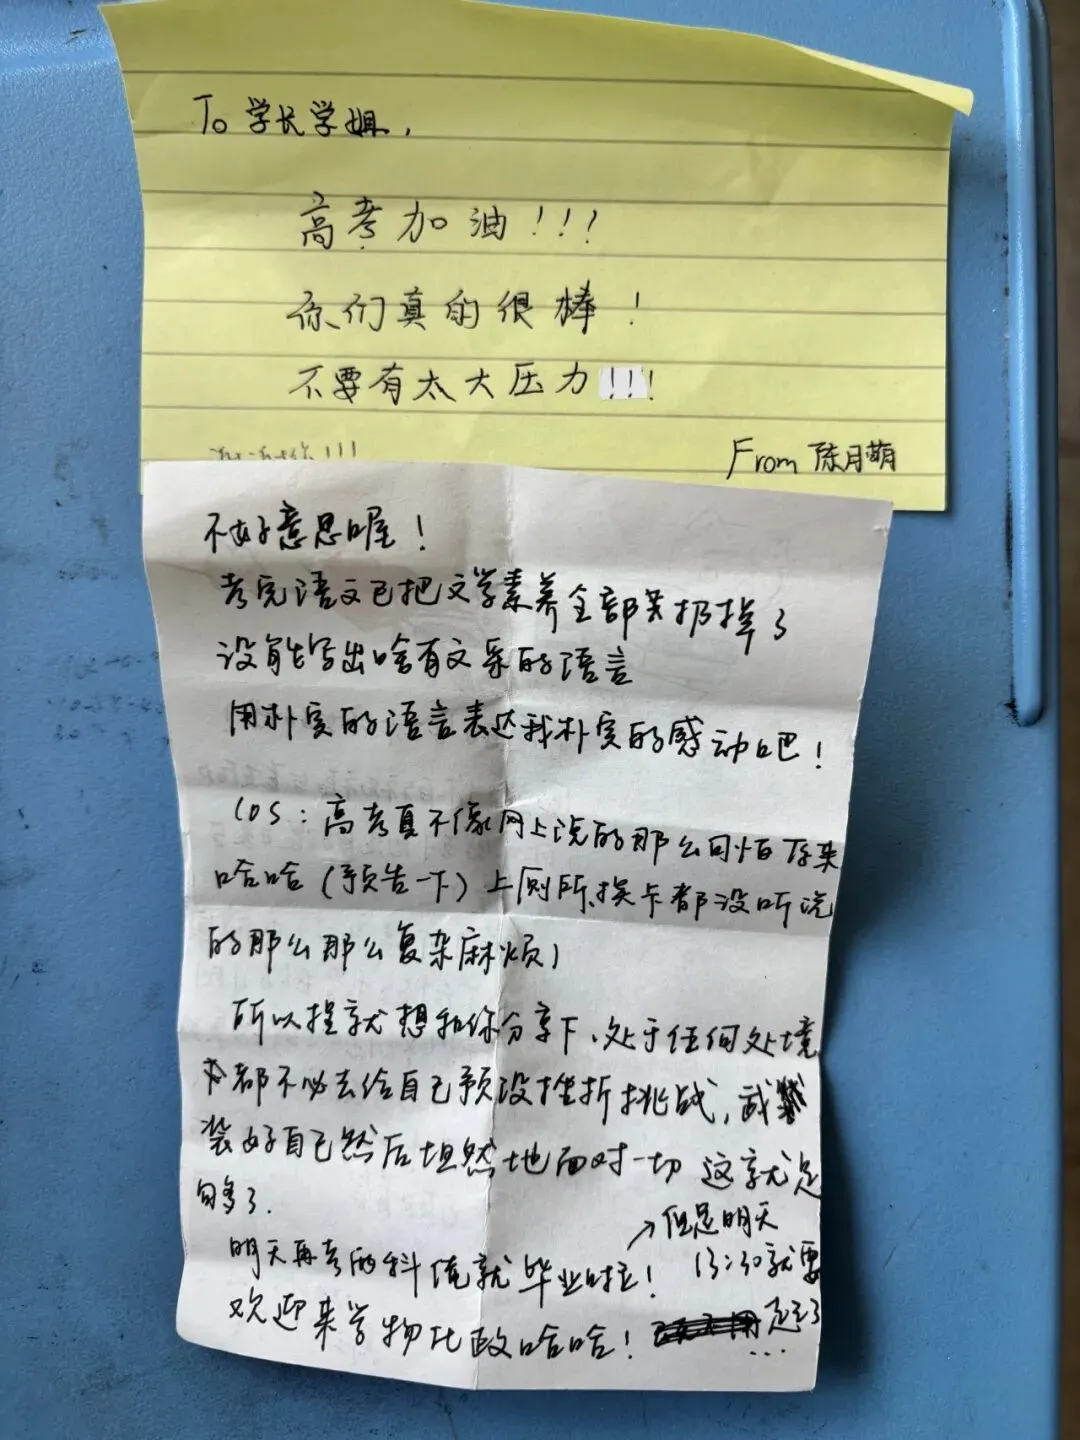 To 学长学姐,
高考加油!!!
你们真的很棒!
不要有太大压力!!!
From 陈月萌
不好意思喔!
考完语文已把文学素养全部扔掉了
没能写出啥有文采的语言
用朴实的语言表达我朴实的感动吧!
(OS:高考真不像网上说的那么可怕存来
哈哈(预告一下)上厕所、换卡都没听说
的那么那么复杂麻烦)
所以接就想和你分享下、处于任何处境
都不必去给自己预设挫折挑战,武
装好自己然后坦然地面对一切 这就足
够了.
明天再考两科俺就毕业啦!
→但是明天
13:30就要
走了...
欢迎来学物化政哈哈!